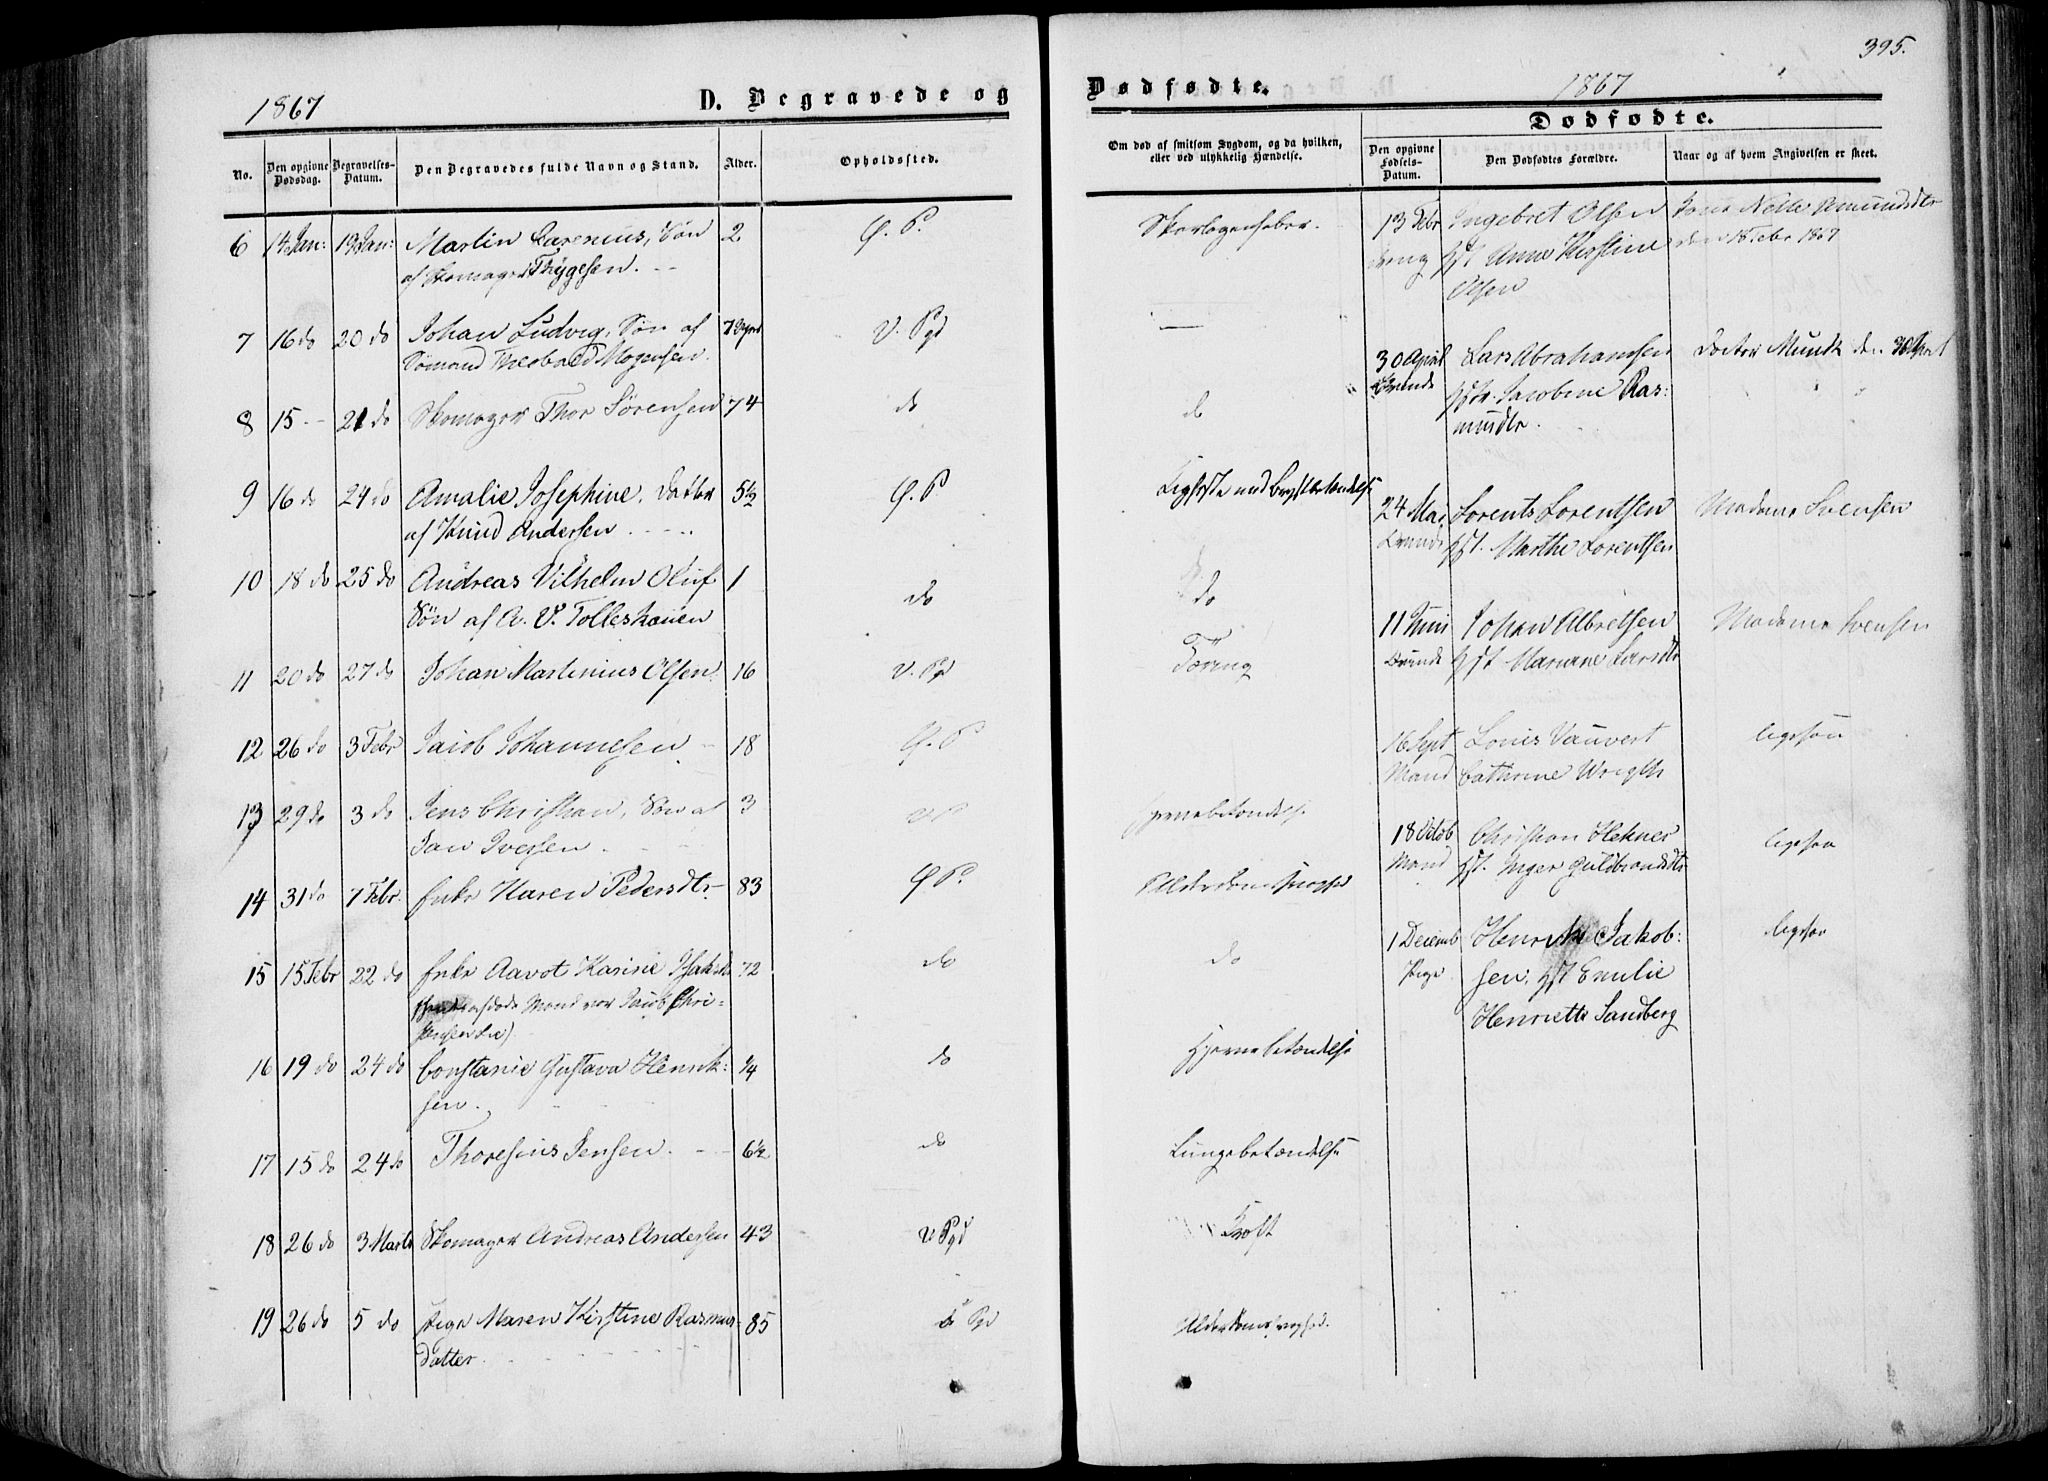 1867
D. Begravede og
No.
Den opgivne Dødsdag.
Begravelses-Datum.
Den Begravedes fulde Navn og Stand.
Alder.
Opholdssted.
6 14 Jan: 19 Jan: Martin Larenius, Søn 2 Ø. P.
af Skomager Thygesen.
7 16 do 20 do Johan Ludvig, Søn af 7 V. Pgd
Sømand Theobald Mogensen.
8 15 - 21 do Skomager Thor Sörensen 74 do
9 16 do 24 do Amalie Josephine, Datter 5½ Ø. P
af Knud Andersen
10 18 do 25 do Andreas Vilhelm Oluf 1 do
Søn af A. V. Tolleshauen
11 20 do 27 do Johan Martinius Olsen 16 V. Pgd
12 26 do 3 Febr Jacob Johannesen 18 Ø. P
13 29 do 3 do Jens Christian, Søn af 3
Jan Iversen.
14 31 do 7 Febr. Enke Karen Pedersdtr 83 Ø P.
15 15 Febr 22 do Enke Aavot Karine 72 do
Mand var Jacob Chri-
16 19 do 24 do Constanie Gustava Henrik- ¼ do
sen.
17 15 do 24 do Thoresius Jensen. 6½ do
18 26 do 3 Marts Skomager Andreas Andersen 43 V Pgd
19 26 do 5 do Pige Maren Kirstine Rasmus- 85 Pgd
datter.
395.
Dødfødte.
1867
Om død af smitsom Sygdom, og da hvilken, eller ved ulykkelig Hændelse.
Dødfødte.
Den opgivne Fødsels-Datum.
Den Dødfødtes Forældre.
Naar og af hvem Angivelsen er skeet.
Skarlagensfeber. 13 Febr Ingebret Olsen Nelle Amundsdtr
dreng Hst. Anne Kirstine den 18 Febr 1867
Olsen
30 April Lars Abrahamsen Doctor Munk den 30 April
Kvinde Hstr. Jacobine Ras-
do
mudtr.
Kighoste med Brystbetændelse
24 Mai Lorents Lorentsen Madame Svensen
Kvinde Hst. Marthe Lorentsen
do
11 Juni Johan Albretsen Madame Svensen
Kvinde Hst Mariane Larsdtr
Tæring
16 Sept Louis Vauvert ligesaa
Mand Cathrine Wrigth
Hjernebetændelse
18 Octob Christian Hekner ligesaa
Mand Hst. Inger Guldbrandsdtr
Alderdomssvaghed
1 Decemb Henrik Jakob- ligesaa
Pige sen, Hst Emilie
Henriette Sandberg
do
Hjernebetændelse
Lungebetændelse
Kræft
Alderdomssvaghed.